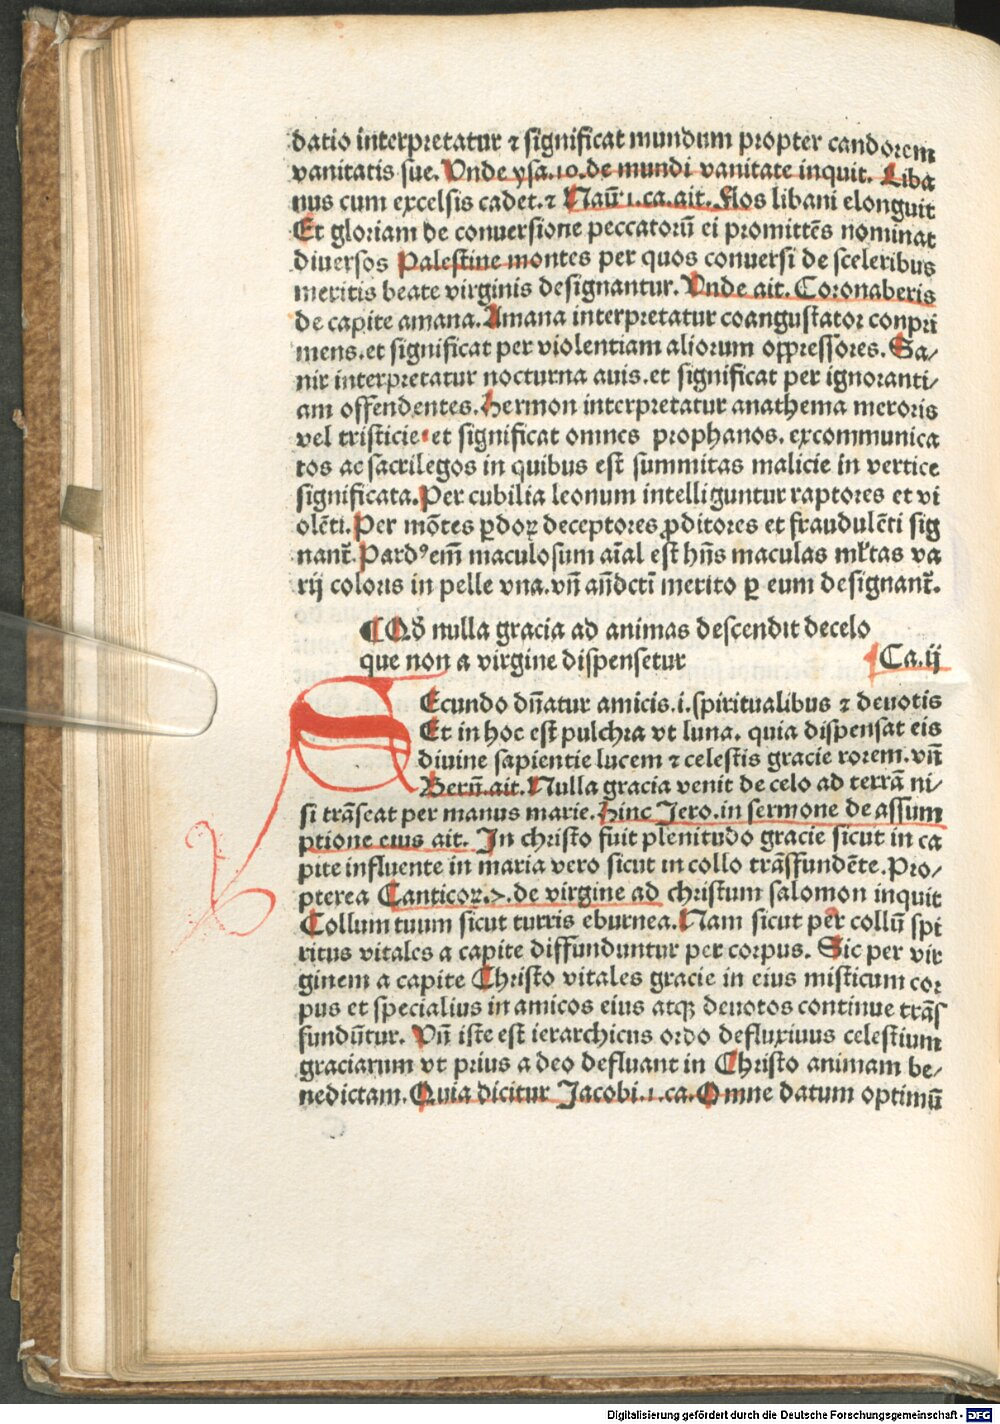 datio interpretatur ⁊ significat mundum propter candorem
vanitatis sue. Vnde ysa.10.de mundi vanitate inquit. Liba
nus cum excelsis cadet.⁊ Naū 1.ca.ait. Flos libani elonguit
Et gloriam de conuersione peccatorū ei promittēs nominat
diuersos Palestine montes per quos conuersi de sceleribus
meritis beate virginis designantur. Vnde ait. Coronaberis
de capite amana. Amana interpretatur coangustator conpri
mens.et significat per violentiam aliorum oppressores. Sa/
nir interpretatur nocturna auis.et significat per ignoranti/
am offendentes. Hermon interpretatur anathema meroris
vel tristicie.et significat omnes prophanos. excommunica
tos ac sacrilegos in quibus est summitas malicie in vertice
significata. Per cubilia leonum intelliguntur raptores et vi
olēti. Per mōtes ꝑdoꝝ deceptores ꝓditores et fraudulēti sig
nant̄. Pardꝰ em̄ maculosum aīal est hn̄s maculas ml̄tas va
rij coloris in pelle vna.vn̄ an̄dcti merito ꝑ eum designant̄.
¶ Qd̄ nulla gracia ad animas descendit decelo
que non a virgine dispensetur Ca.ij
SEcundo dn̄atur amicis.i.spiritualibus ⁊ deuotis
Et in hoc est pulchra vt luna. quia dispensat eis
diuine sapientie lucem ⁊ celestis gracie rorem.vn̄
Bern̄.ait. Nulla gracia venit de celo ad terrā ni/
si trāseat per manus marie. Hinc Jero.in sermone de assum
ptione eius ait. In christo fuit plenitudo gracie sicut in ca
pite influente in maria vero sicut in collo trāsfundēte. Pro/
pterea Canticoꝝ.7.de virgine ad christum salomon inquit
Collum tuum sicut turris eburnea. Nam sicut per collū spi
ritus vitales a capite diffunduntur per corpus. Sic per vir
ginem a capite Christo vitales gracie in eius misticum cor
pus et specialius in amicos eius atqꝫ deuotos continue trās
fundūtur. Vn̄ iste est ierarchicus ordo defluxiuus celestium
graciarum vt prius a deo defluant in Christo animam be/
nedictam. Quia dicitur Jacobi.1.ca. Omne datum optimū
Digitalisierung gefördert durch die Deutsche Forschungsgemeinschaft - DFG